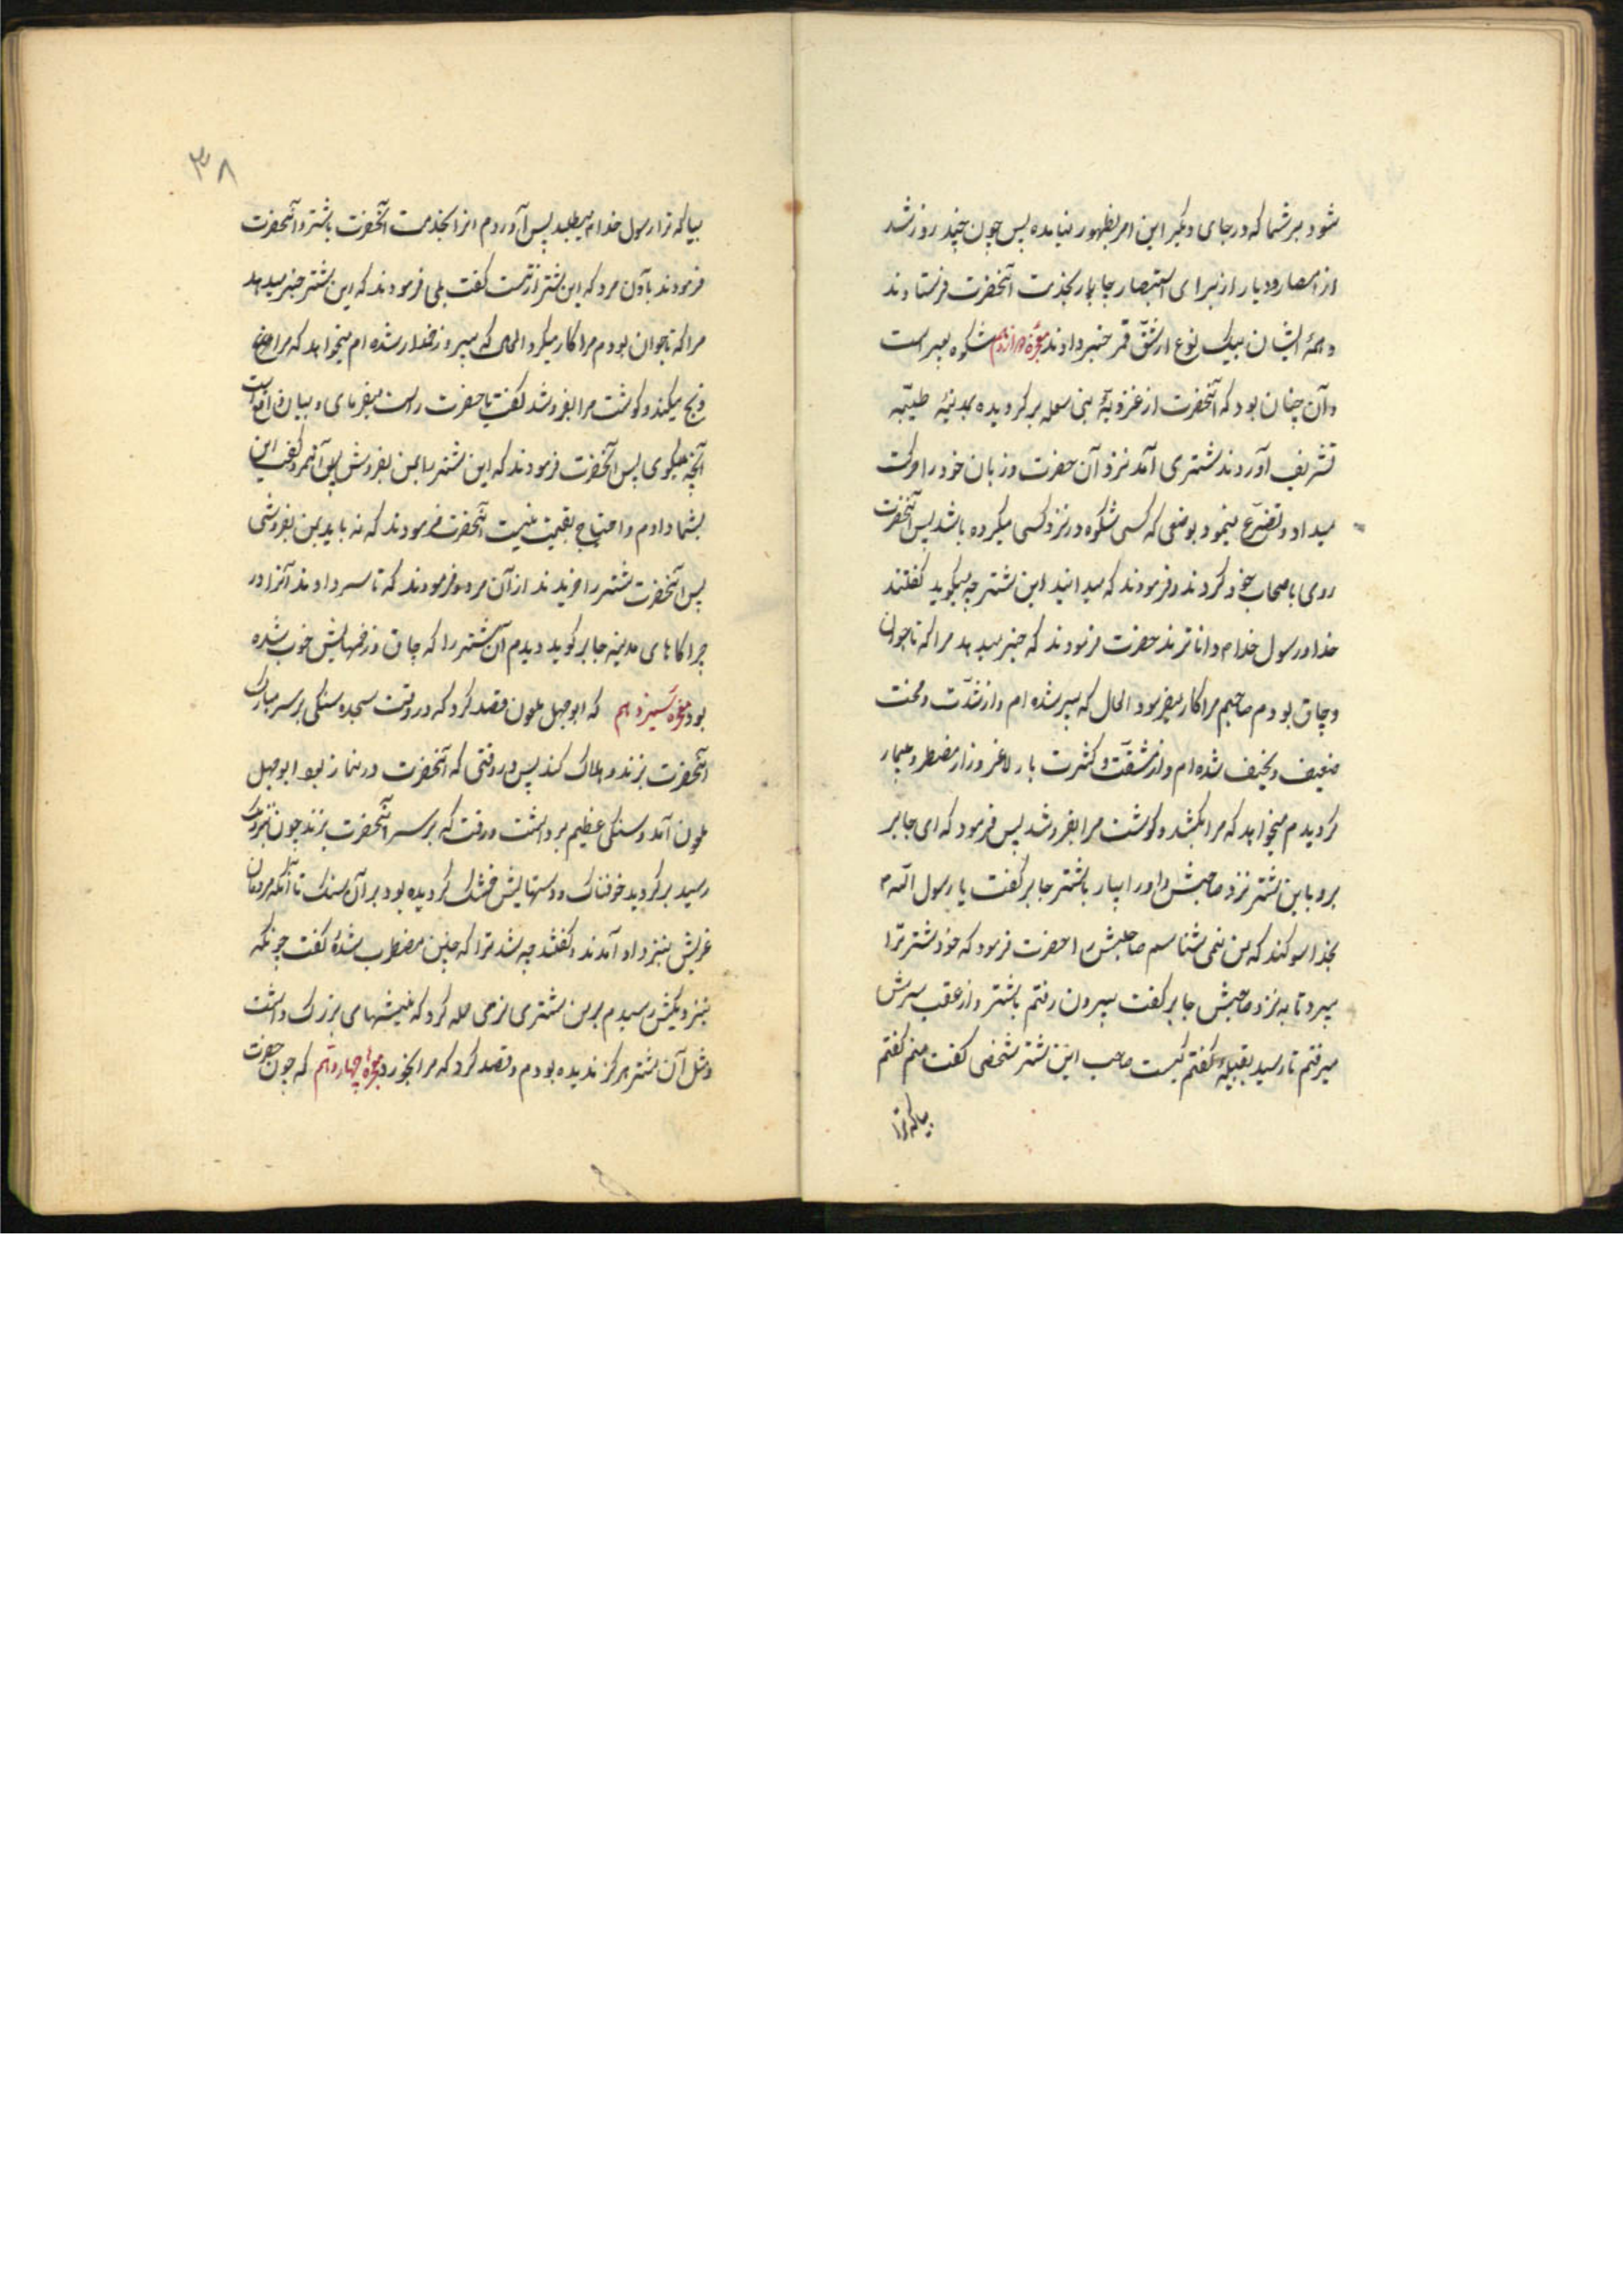 شود بر شما که در جای دیگر این امر بظهور نیامده پس چون چند روز شد
از امصار و دیار از برای استبصار جابجا بخدمت آنحضرت فرستادند
و همهٔ ایشان بیک نوع از شقّ قمر خبر دادند معجزه دوازدهم شکوه بعیر است
و آن چنان بود که آنحضرت از غزوهٔ بنی ثعلبه برگردیده بمدینهٔ طیّبه
تشریف آوردند شتری آمد نزد آن حضرت و زبان خود را حرکت
میداد و تضرّع مینمود بوضعی که کسی شکوه در نزد کسی میکرده باشد پس آنحضرت
روی باصحاب خود کردند و فرمودند که میدانید این شتر چه میگوید گفتند
خدا و رسول خدا م داناترند حضرت فرمودند که خبر میدهد مرا که تا جوان
و چاق بودم صاحبم مرا کار میفرمود الحال که پیر شده ام و از شدّت و محنت
ضعیف و نحیف شده ام و از مشقّت و کثرت بار لاغر و زار مضطر و بیمار
گردیدم میخواهد که مرا بکشد و گوشت مرا بفروشد پس فرمود که ای جابر
برو با این شتر نزد صاحبش و او را بیار با شتر جابر گفت یا رسول اللّه م
بخدا سوکند که من نمی شناسم صاحبش را حضرت فرمود که خود شتر ترا
میبرد تا به نزد صاحبش جابر گفت بیرون رفتم با شتر و از عقب سرش
میرفتم تا رسید بقبیلهٔ گفتم کیست صاحب این شتر شخصی گفت منم گفتم
بیا که ترا
۳۸
بیا که ترا رسول خدا م میطلبد پس آوردم او را بخدمت آنحضرت با شتر و آنحضرت
فرمودند بآن مرد که این شتر از تست گفت بلی فرمودند که این شتر خبر میدهد
مرا که تا جوان بودم مرا کار میکرد الحال که پیر و زخدار شده ام میخواهد که مرا
ذبح میکند و گوشت مرا بفروشد گفت یا حضرت راست میفرمای و بیان واقع است
آنچه میگوی پس آنحضرت فرمودند که این شتر را بمن بفروش پس آنمرد گفت این
بشما دادم و احتیاج بقیمت نیست آنحضرت فرمودند که نه باید بمن بفروشی
پس آنحضرت شتر را خریدند از آن مرد و فرمودند که تا سر دادند آنرا در
چراگاهای مدینه جابر گوید دیدم آن شتر را که چاق و زخمهایش خوب شده
بود معجزه سیزدهم که ابو جهل ملعون قصد کرد که در وقت سجده سنگی بر سر مبارک
آنحضرت بزند و هلاک کند پس در وقتی که آنحضرت در نماز بود ابو جهل
ملعون آمد و سنگی عظیم برداشت و رفت که بر سر آنحضرت بزند چون نزدیک
رسید برگردید خوفناک و دستهایش خشک گردیده بود بر آن سنک تا آنکه مردمان
قریش بنزد او آمدند و گفتند چه شد ترا که چنین مضطرب شدهٔ گفت چونکه
بنزدیکش رسیدم بر من شتری نر می حمله کرد که نیشهای بزرگ داشت
و مثل آن شتر هرگز ندیده بودم و قصد کرد که مرا بخورد معجزه چهاردهم که چون حضرت